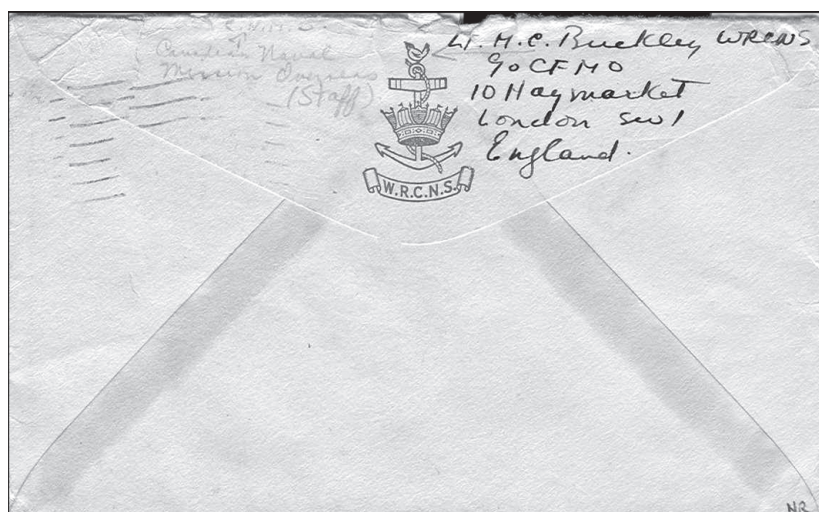 C.N.M.O.
Canadian Naval
Mission Overseas
(Staff)
Lt. M.C. Buckley WRCNS
℅ CFMO
10 Haymarket
London SW1
England.
W.R.C.N.S.
NR